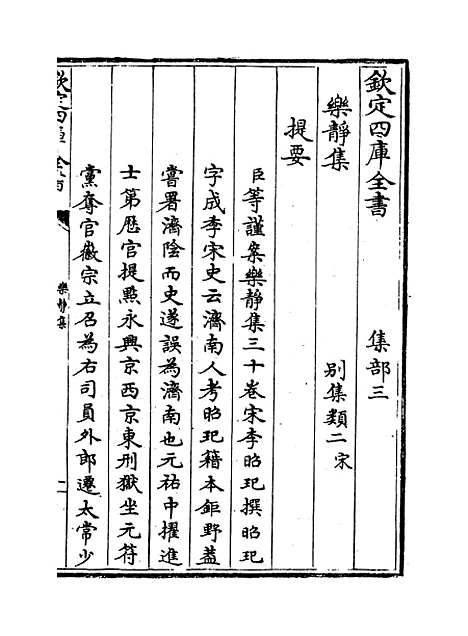 欽定四庫全書 集部三
樂靜集 別集類二 宋
提要
臣等謹案樂靜集三十卷宋李昭玘撰昭玘
字成季宋史云濟南人考昭玘籍本鉅野葢
嘗署濟陰而史遂誤為濟南也元祐中擢進
士第歴官提㸃永興京西京東刑獄坐元符
黨奪官徽宗立召為右司員外郎遷太常少
欽定四庫全書
樂靜集